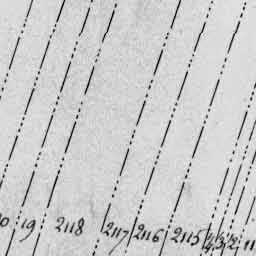 0 19 2118 2117 2116 2115 4 3 2 11